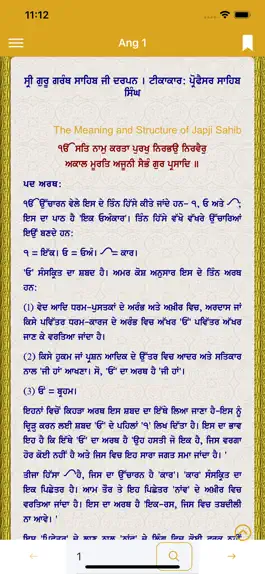 11:12
Ang 1
ਸ੍ਰੀ ਗੁਰੂ ਗਰੰਥ ਸਾਹਿਬ ਜੀ ਦਰਪਨ । ਟੀਕਾਕਾਰ: ਪ੍ਰੋਫੈਸਰ ਸਾਹਿਬ
ਸਿੰਘ
The Meaning and Structure of Japji Sahib
ੴ ਸਤਿ ਨਾਮੁ ਕਰਤਾ ਪੁਰਖੁ ਨਿਰਭਉ ਨਿਰਵੈਰੁ
ਅਕਾਲ ਮੂਰਤਿ ਅਜੂਨੀ ਸੈਭੰ ਗੁਰ ਪ੍ਰਸਾਦਿ ॥
ਪਦ ਅਰਥ:
ੴ ਉੱਚਾਰਨ ਵੇਲੇ ਇਸ ਦੇ ਤਿੰਨ ਹਿੱਸੇ ਕੀਤੇ ਜਾਂਦੇ ਹਨ- ੧, ਓ ਅਤੇ
ਇਸ ਦਾ ਪਾਠ ਹੈ 'ਇਕ ਓਅੰਕਾਰ'। ਤਿੰਨ ਹਿੱਸੇ ਵੱਖੋ ਵੱਖਰੇ ਉੱਚਾਰਿਆਂ
ਇਉਂ ਬਣਦੇ ਹਨ:
੧ = ਇੱਕ। ਓ = ਓਅੰ। = ਕਾਰ।
'ਓ' ਸੰਸਕ੍ਰਿਤ ਦਾ ਸ਼ਬਦ ਹੈ। ਅਮਰ ਕੋਸ਼ ਅਨੁਸਾਰ ਇਸ ਦੇ ਤਿੰਨ ਅਰਥ
ਹਨ:
(1) ਵੇਦ ਆਦਿ ਧਰਮ-ਪੁਸਤਕਾਂ ਦੇ ਅਰੰਭ ਅਤੇ ਅਖ਼ੀਰ ਵਿਚ, ਅਰਦਾਸ ਜਾਂ
ਕਿਸੇ ਪਵਿੱਤਰ ਧਰਮ-ਕਾਰਜ ਦੇ ਅਰੰਭ ਵਿਚ ਅੱਖਰ 'ਓਂ' ਪਵਿੱਤਰ ਅੱਖਰ
ਜਾਣ ਕੇ ਵਰਤਿਆ ਜਾਂਦਾ ਹੈ।
(2) ਕਿਸੇ ਹੁਕਮ ਜਾਂ ਪ੍ਰਸ਼ਨ ਆਦਿਕ ਦੇ ਉੱਤਰ ਵਿਚ ਆਦਰ ਅਤੇ ਸਤਿਕਾਰ
ਨਾਲ 'ਜੀ ਹਾਂ' ਆਖਣਾ। ਸੋ, 'ਓਂ' ਦਾ ਅਰਥ ਹੈ 'ਜੀ ਹਾਂ'।
(3) ਓਂ = ਬ੍ਰਹਮ।
ਇਹਨਾਂ ਵਿਚੋਂ ਕਿਹੜਾ ਅਰਥ ਇਸ ਸ਼ਬਦ ਦਾ ਇੱਥੇ ਲਿਆ ਜਾਣਾ ਹੈ-ਇਸ ਨੂੰ
ਦ੍ਰਿੜ੍ਹ ਕਰਨ ਲਈ ਸ਼ਬਦ 'ਓਂ' ਦੇ ਪਹਿਲਾਂ '੧' ਲਿਖ ਦਿੱਤਾ ਹੈ। ਇਸ ਦਾ ਭਾਵ
ਇਹ ਹੈ ਕਿ ਇੱਥੇ 'ਓਂ' ਦਾ ਅਰਥ ਹੈ 'ਉਹ ਹਸਤੀ ਜੋ ਇਕ ਹੈ, ਜਿਸ ਵਰਗਾ
ਹੋਰ ਕੋਈ ਨਹੀਂ ਹੈ ਅਤੇ ਜਿਸ ਵਿਚ ਇਹ ਸਾਰਾ ਜਗਤ ਸਮਾ ਜਾਂਦਾ ਹੈ। '
ਤੀਜਾ ਹਿੱਸਾ ਹੈ, ਜਿਸ ਦਾ ਉੱਚਾਰਨ ਹੈ 'ਕਾਰ'। 'ਕਾਰ' ਸੰਸਕ੍ਰਿਤ ਦਾ
ਇਕ ਪਿਛੇਤਰ ਹੈ। ਆਮ ਤੌਰ ਤੇ ਇਹ ਪਿਛੇਤਰ 'ਨਾਂਵ' ਦੇ ਅਖ਼ੀਰ ਵਿਚ
ਵਰਤਿਆ ਜਾਂਦਾ ਹੈ। ਇਸ ਦਾ ਅਰਥ ਹੈ 'ਇਕ-ਰਸ, ਜਿਸ ਵਿਚ ਤਬਦੀਲੀ
ਨਾ ਆਵੇ। '
1